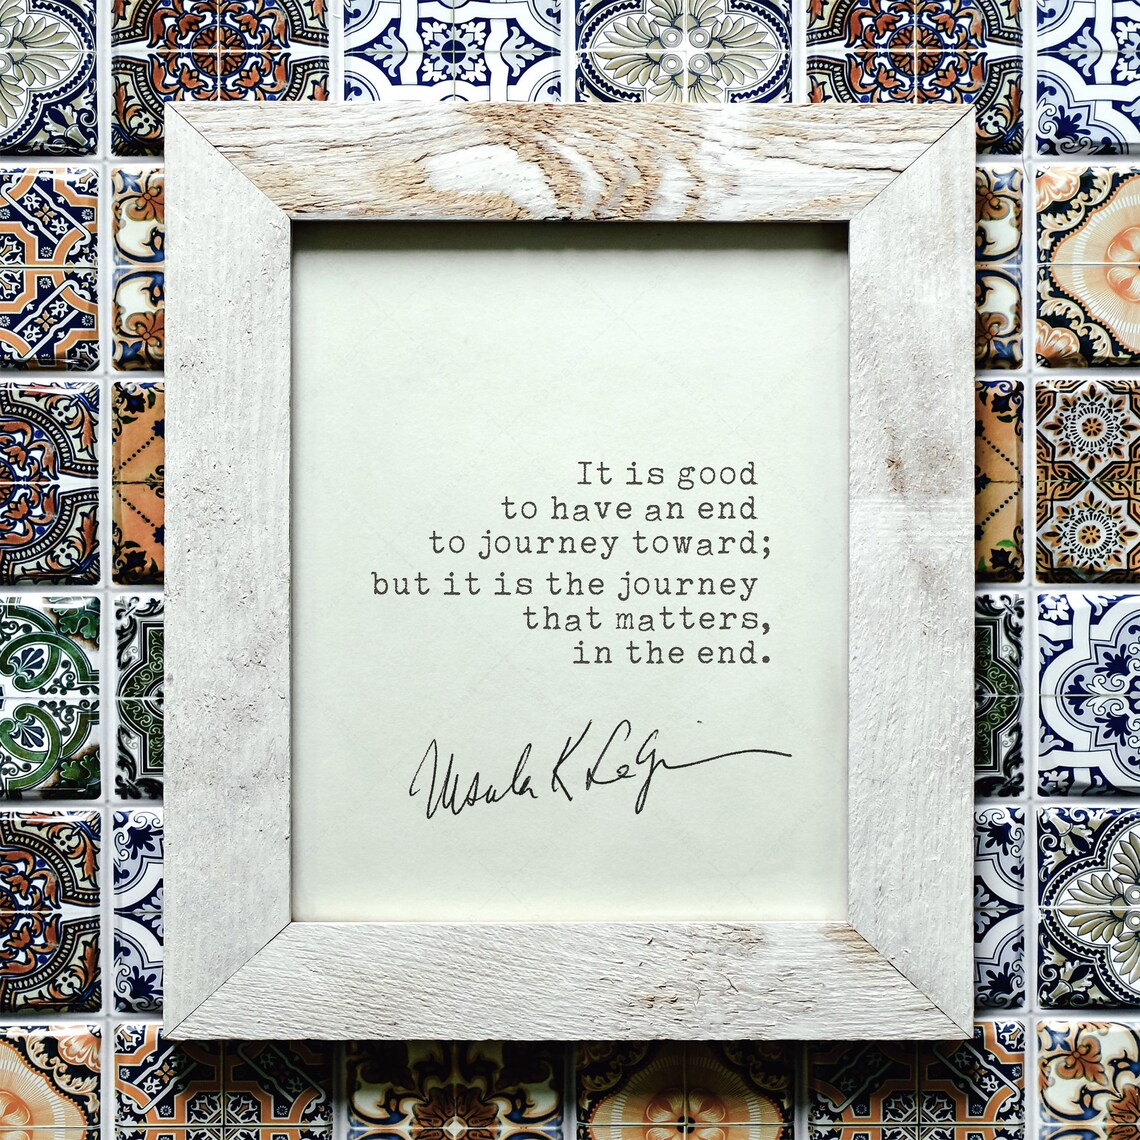 It is good
to have an end
to journey toward;
but it is the journey
that matters,
in the end.
Ursula K LeGuin